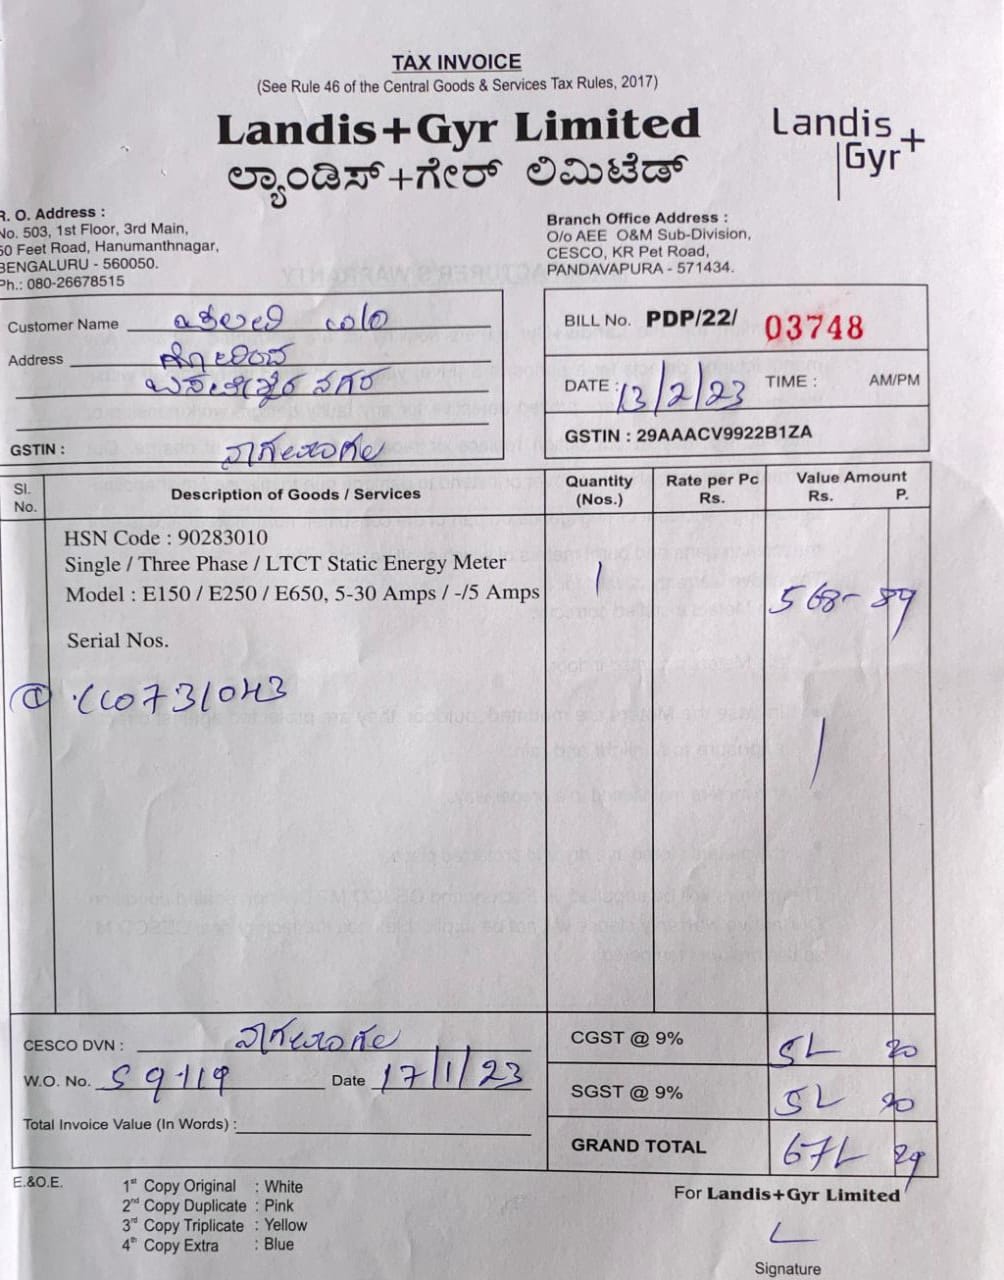 TAX INVOICE
(See Rule 46 of the Central Goods & Services Tax Rules, 2017)
Landis+Gyr Limited
ಲ್ಯಾಂಡಿಸ್+ಗೇರ್ ಲಿಮಿಟೆಡ್
Landis
Gyr+
R. O. Address :
No. 503, 1st Floor, 3rd Main,
60 Feet Road, Hanumanthnagar,
BENGALURU - 560050.
Ph.: 080-26678515
Branch Office Address :
O/o AEE O&M Sub-Division,
CESCO, KR Pet Road,
PANDAVAPURA - 571434.
Customer Name
Address
GSTIN :
BILL No. PDP/22/ 03748
DATE : 13/2/23 TIME : AM/PM
GSTIN : 29AAACV9922B1ZA
Sl. No. Description of Goods / Services Quantity (Nos.) Rate per Pc Rs. Value Amount Rs. P.
HSN Code : 90283010
Single / Three Phase / LTCT Static Energy Meter
Model : E150 / E250 / E650, 5-30 Amps / -/5 Amps 1 568-89
Serial Nos.
CESCO DVN :
W.O. No. 59119 Date 17/1/23
Total Invoice Value (In Words) :
CGST @ 9% 51 20
SGST @ 9% 51 20
GRAND TOTAL 671 29
E.&O.E.
1st Copy Original : White
2nd Copy Duplicate : Pink
3rd Copy Triplicate : Yellow
4th Copy Extra : Blue
For Landis+Gyr Limited
Signature